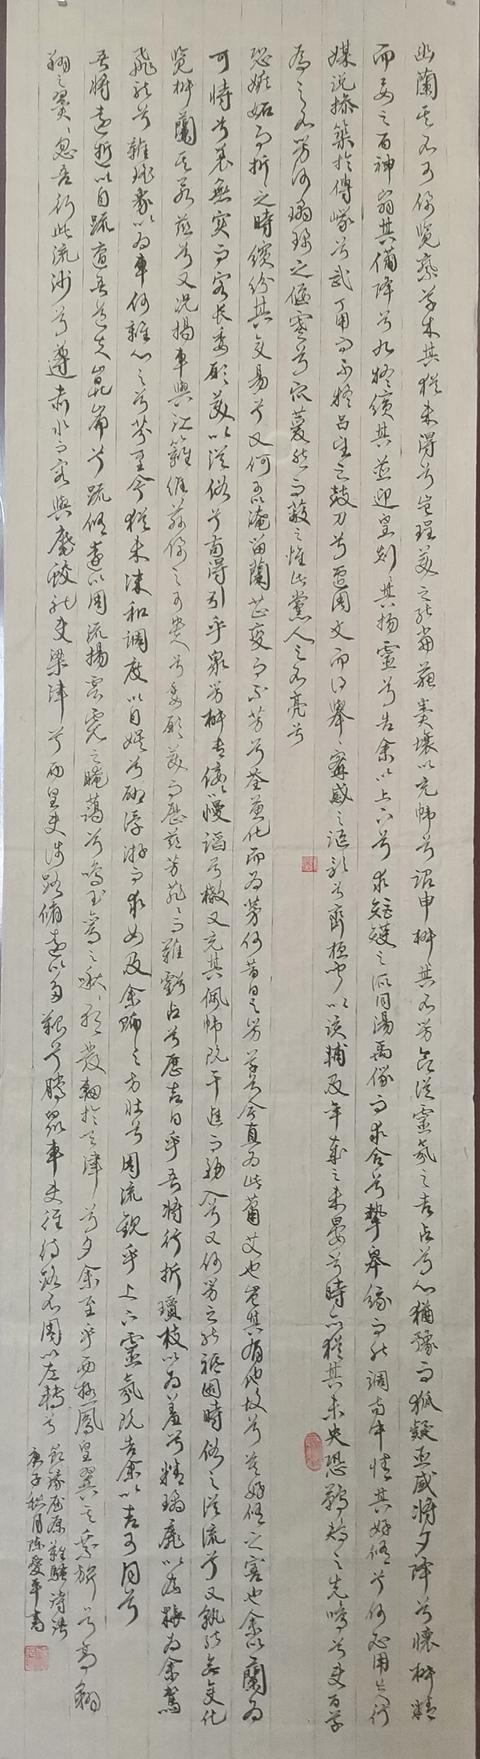 幽蘭其不可佩覽察草木其猶未得兮豈珵美之能當蘇糞壤以充幃兮謂申椒其不芳欲從靈氛之吉占兮心猶豫而狐疑巫咸將夕降兮懷椒糈
而要之百神翳其備降兮九疑繽其並迎皇剡々其揚靈兮告余以上下兮求矩矱之所同湯禹儼而求合兮摯皋繇而能調苟中情其好脩兮何必用夫行
媒說操築於傅巖兮武丁用而不疑呂望之鼓刀兮遭周文而得舉甯戚之謳歌兮齊桓聞以該輔及年歲之未晏兮時亦猶其未央恐鵜鴂之先鳴兮使百草
為之不芳何瓊佩之偃蹇兮眾薆然而蔽之惟此黨人之不亮兮
恐嫉妬而折之時繽紛其變易兮又何可以淹留蘭芷變而不芳兮荃蕙化而為茅何昔日之芳草兮今直為此蕭艾也豈其有他故兮莫好脩之害也余以蘭為
可恃兮羌無實而容長委厥美以從俗兮苟得列乎眾芳椒專佞以慢謟兮樧又充其佩幃既干進而務入兮又何芳之能祗固時俗之從流兮又孰能無變化
覽椒蘭其若茲兮又況揭車與江蘺惟茲佩之可貴兮委厥美而歷茲芳菲而難虧占兮歷吉日乎吾將行折瓊枝以為羞兮精瓊爢以為粻為余駕
飛龍兮雜瑤象以為車何離心之兮芬至今猶未沬和調度以自娛兮聊浮游而求女及余飾之方壯兮周流觀乎上下靈氛既告余以吉可同兮
吾將遠逝以自疏邅吾道夫崑崙兮路脩遠以周流揚雲霓之晻藹兮鳴玉鸞之啾々朝發軔於天津兮夕余至乎西極鳳皇翼其承旂兮高翱
翔之翼々忽吾行此流沙兮遵赤水而容與麾蛟龍使梁津兮西皇使涉路脩遠以多艱兮騰眾車使徑待路不周以左轉兮
節錄屈原離騷詩
庚子秋月陳愛平書